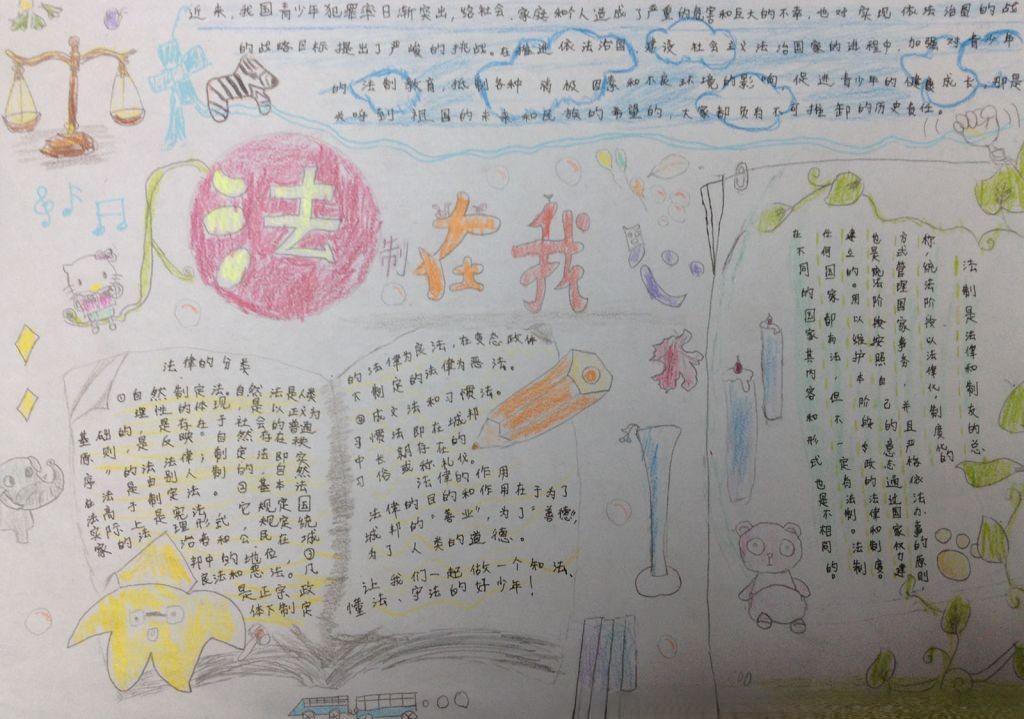 近来，我国青少年犯罪率日渐突出，给社会、家庭和个人造成了严重的危害和巨大的不幸，也对实现依法治国的战
的战略目标提出了严峻的挑战。在推进依法治国 建设社会主义法治国家的进程中，加强对青少年
的法制教育，抵制各种消极因素和不良环境的影响，促进青少年的健康成长，却是
关呼到祖国的未来和民族的希望的，大家都负有不可推卸的历史责任。
法制在我心
法制是法律和制度的总
称，统法阶按以法律化，制度化的
方式管理国家事务，并且严格依法办事的原则，
也是统法阶按按照自己的意志通过国家权力建
建立的。用以维护本阶段乡政的法律和制度。
任何国家都有法，但不一定有法制。法制
在不同的国家其内容和形式也是不相同的。
法律的分类
①自然制定法。自然法是人类
理性的体现，是以正义为
基础的，是存在于社会的普遍
原则，是反映自然存在秩
序的法律；制定法即实
在法，是由别人制的。自然
法高于制定法。②基本法
实际上是宪法，它规定国
家的法理形式，规定统
治者和公民在城
邦中的地位，③
民法和恶法。凡
是正宗政
体下制定
的法律为良法，在变态政体
下制定的法律为恶法。
③成文法和习惯法。
习惯法即在城邦
中长期存在的
习俗或称礼仪。
法律的作用
法律的目的和作用在于为了
城邦的“善业”，为了“善德”，
为了人类的道德。
让我们一起做一个知法、
懂法、守法的好少年！